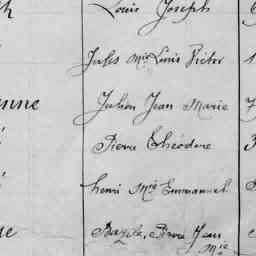 Louis Joseph
Jules Mie Louis Victor
enne Julien Jean Marie
Pierre Théodore
henri Mie Emmanuel
Bazile, Pierre Jean
Mie